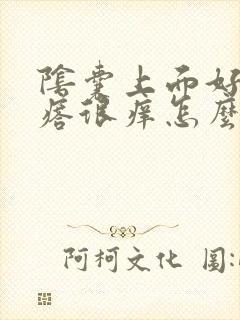 陰囊上面好
痞很痒怎麼
阿柯文化 图: